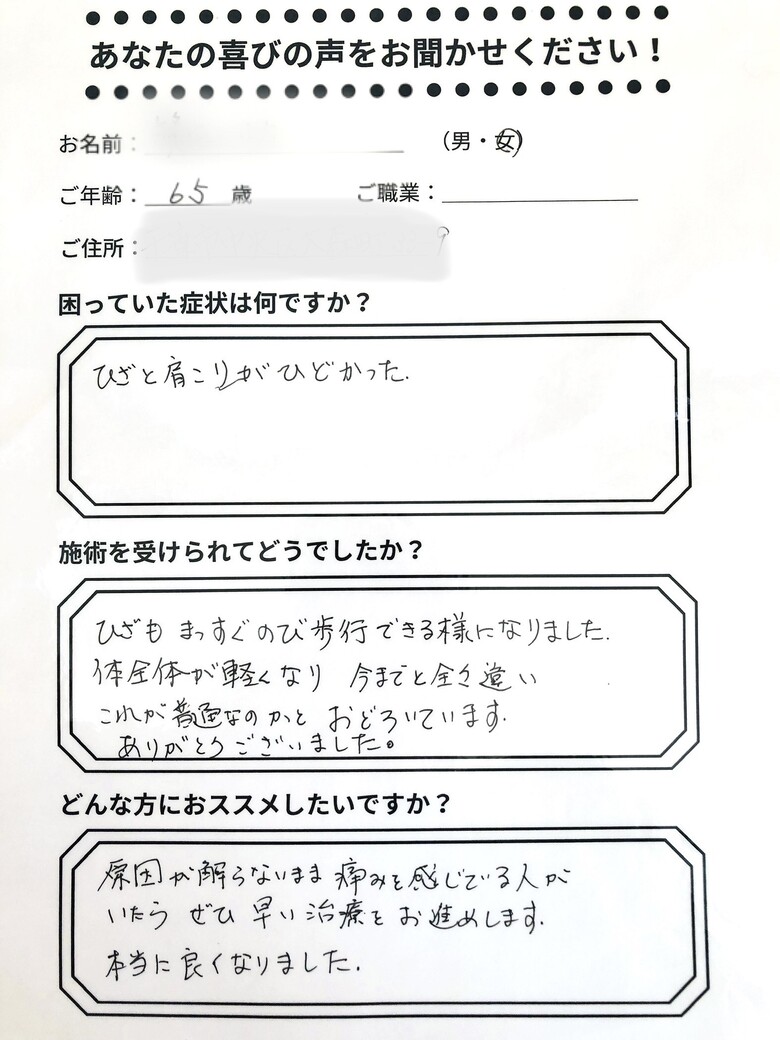 あなたの喜びの声をお聞かせください！
お名前： （男・女）
ご年齢： 65 歳 ご職業：
ご住所：
困っていた症状は何ですか？
ひざと肩こりがひどかった.
施術を受けられてどうでしたか？
ひざも まっすぐのび歩行できる様になりました.
体全体が軽くなり 今までと全々違い
これが普通なのかと おどろいています.
ありがとうございました。
どんな方におススメしたいですか？
原因が解らないまま 痛みを感じている人が
いたら ぜひ 早い治療を お進めします.
本当に良くなりました.